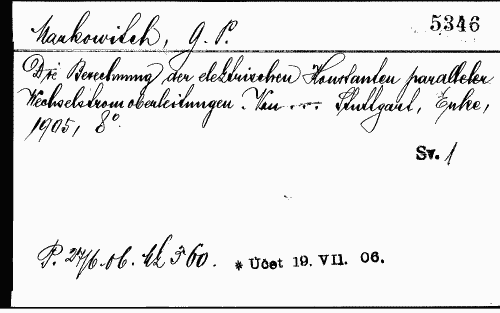 Markowitch, G. P.
5346
Die Berechnung der elektrischen Konstanten paralleler
Wechselstromoberleitungen. Von ... Stuttgart, Enke,
1905, 8°.
Sv. 1
P. 27/6.06. Kč 3·60. * Účet 19. VII. 06.